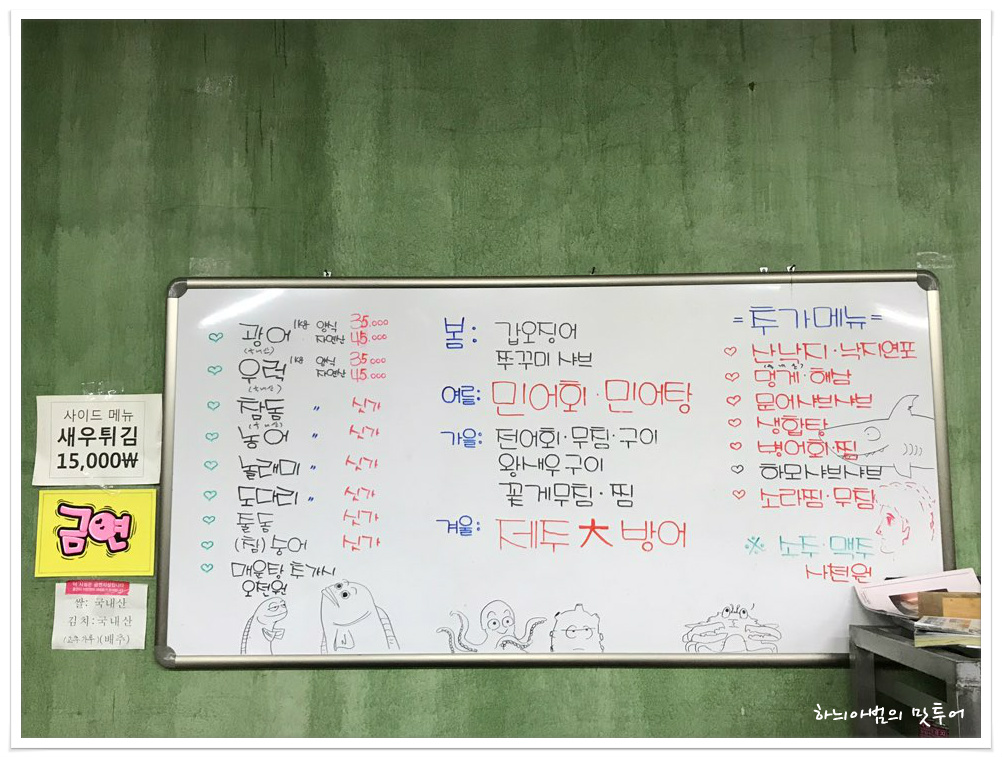 사이드 메뉴
새우튀김
15,000₩
금연
쌀: 국내산
김치: 국내산
(고추가루)(배추)
광어 1kg 양식 35.000
자연산 45.000
(국내산)
우럭 1kg 양식 35.000
자연산 45.000
(국내산)
참돔 〃 싯가
(국내산)
농어 〃 싯가
놀래미 〃 싯가
도다리 〃 싯가
돌돔 싯가
(점)농어 싯가
매운탕 추가시
오천원
봄: 갑오징어
쭈꾸미 샤브
여름: 민어회·민어탕
가을: 전어회·무침·구이
왕새우구이
꽃게무침·찜
겨울: 제주 大 방어
=추가메뉴=
산낙지·낙지연포
멍게·해삼
문어샤브샤브
생합탕
병어회·찜
하모샤브샤브
소라찜·무침
※ 소주·맥주
사천원
하늬아범의 맛투어